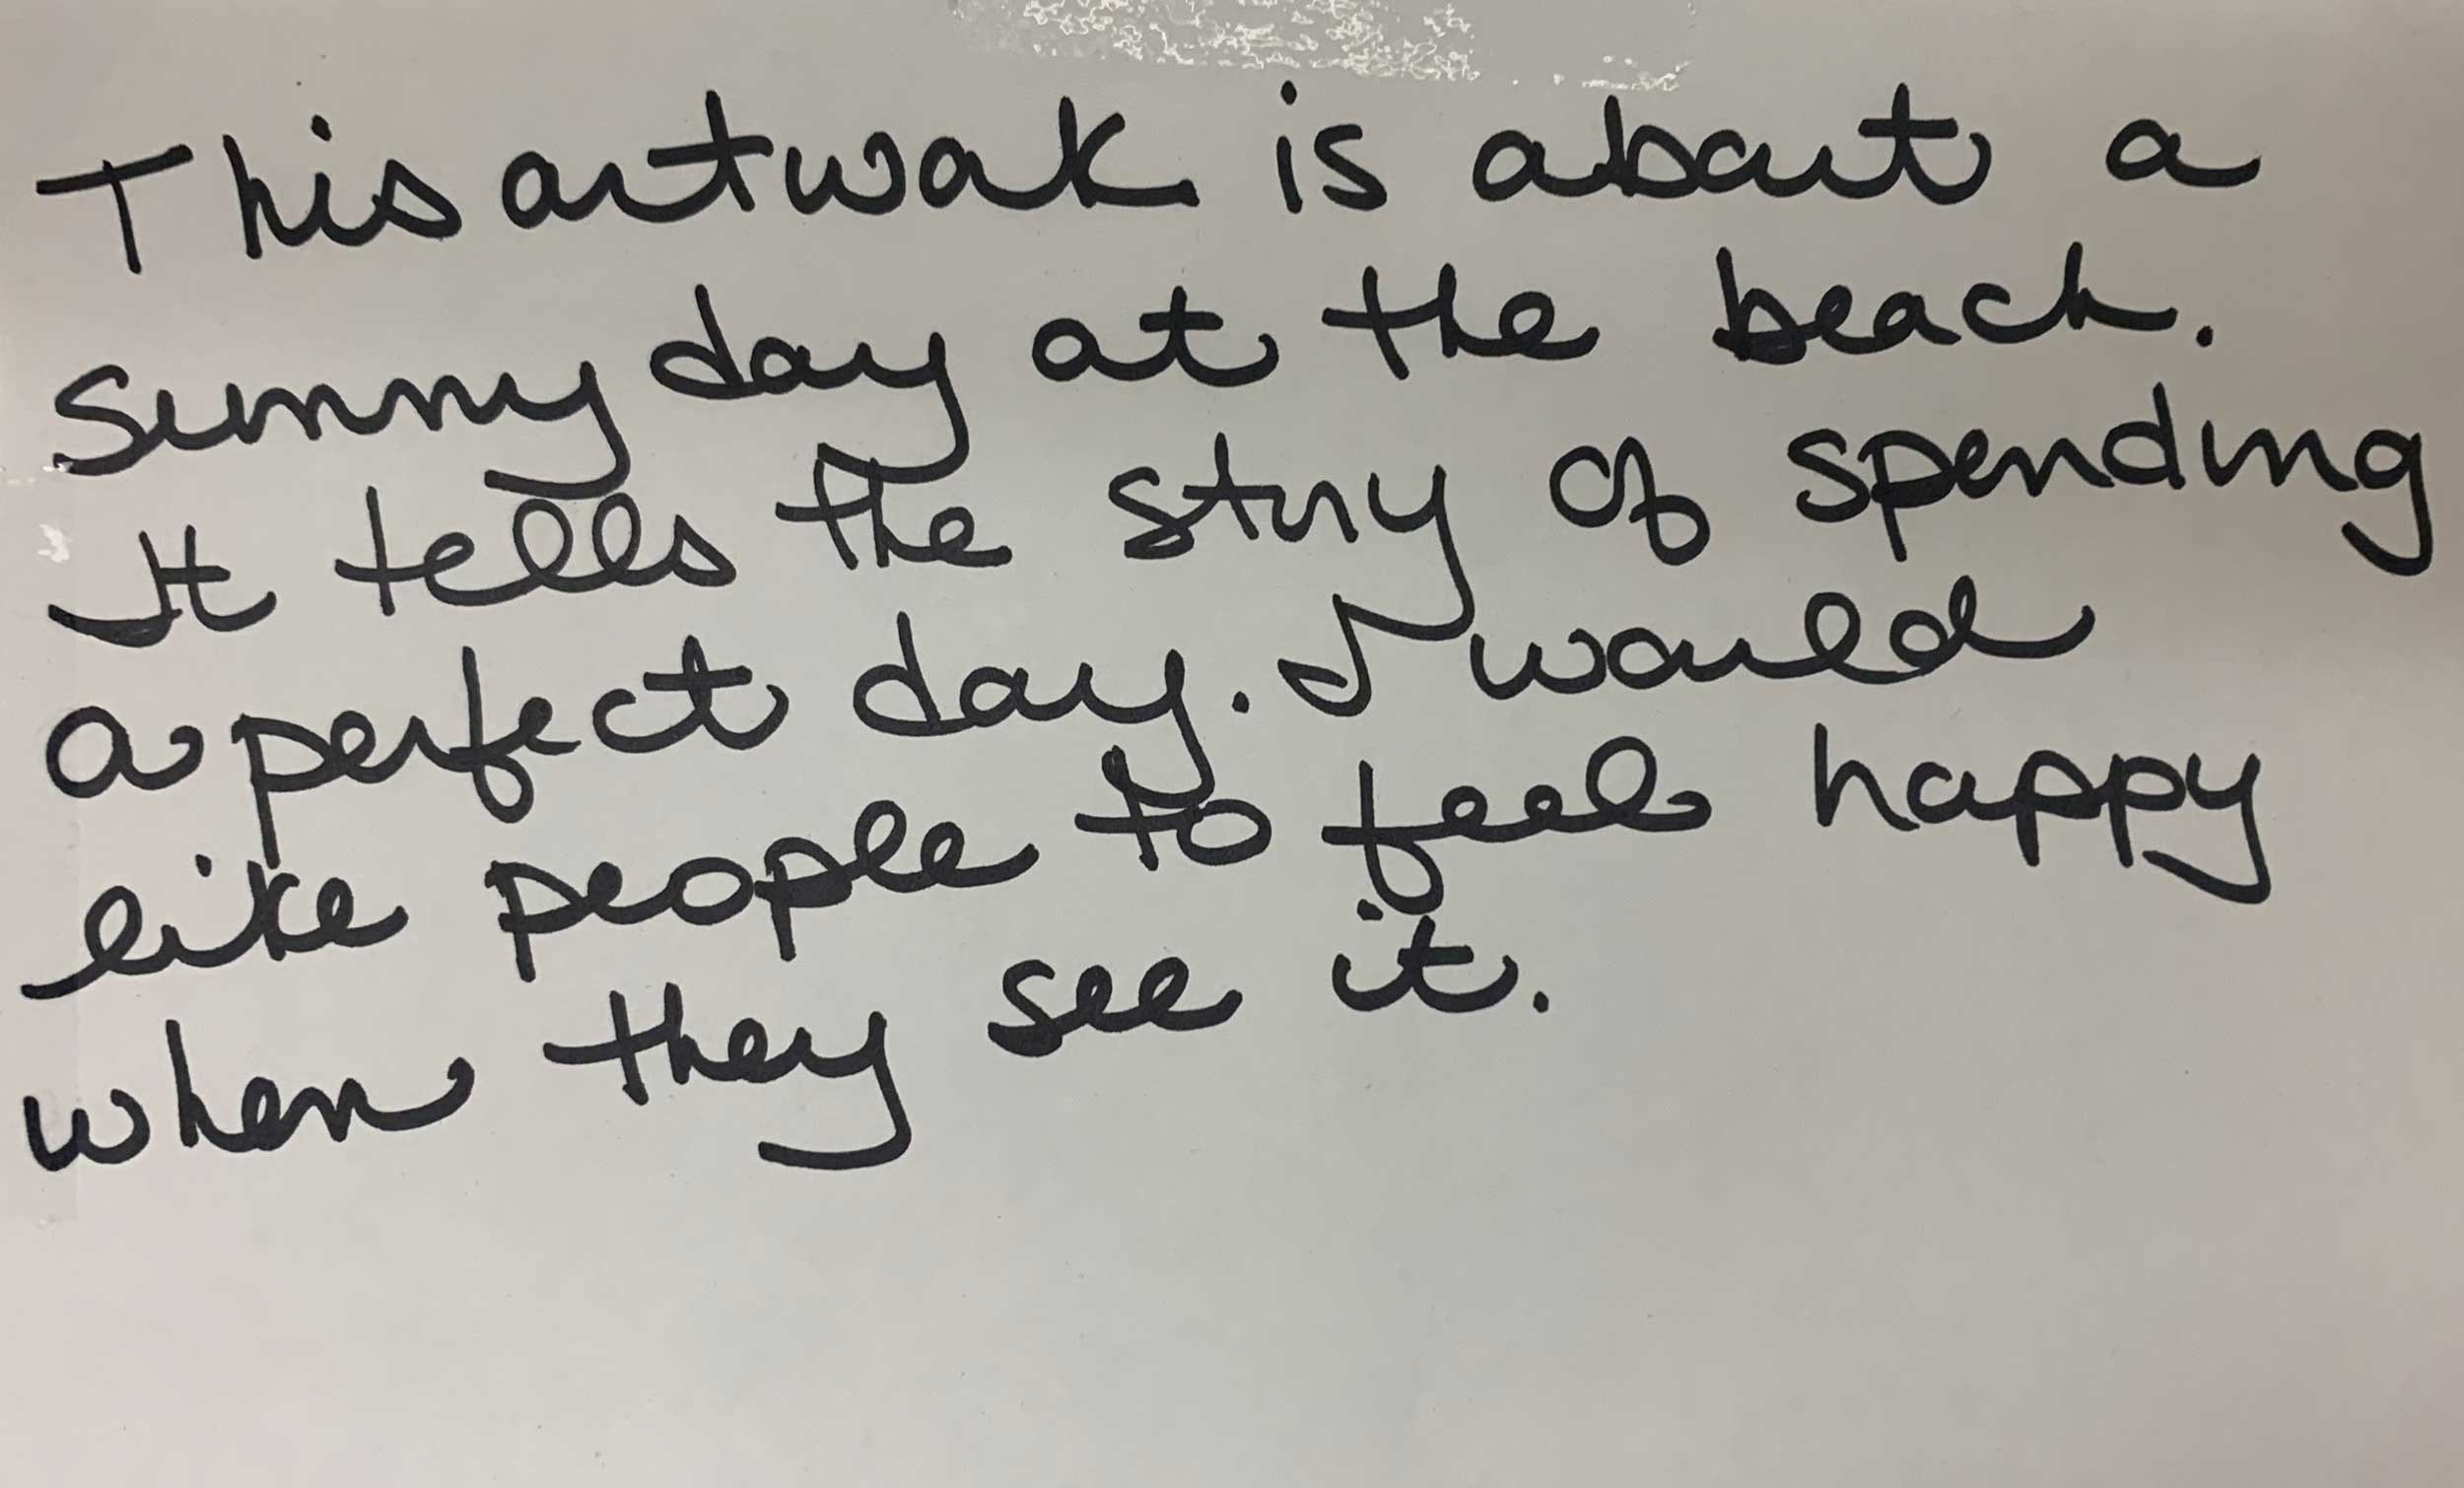 This artwork is about a
sunny day at the beach.
It tells the story of spending
a perfect day. I would
like people to feel happy
when they see it.